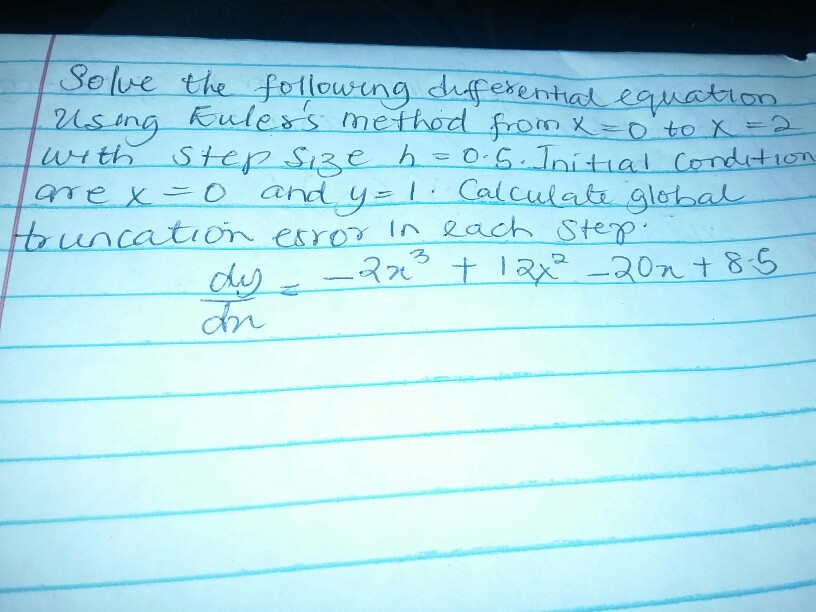 Solve the following differential equation
Using Euler's method from x=0 to x=2
with step size h=0.5. Initial condition
are x=0 and y=1. Calculate global
truncation error in each step.
dy/dx = -2x³ + 12x² -20x + 8.5